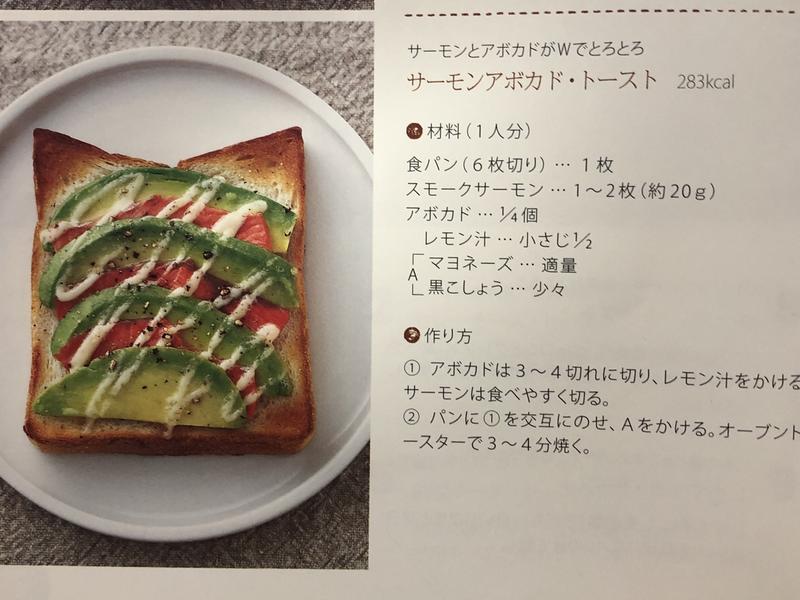 サーモンとアボカドがWでとろとろ
サーモンアボカド・トースト 283kcal
材料（1人分）
食パン（6枚切り）… 1枚
スモークサーモン … 1〜2枚（約20g）
アボカド … 1/4個
レモン汁 … 小さじ1/2
A
マヨネーズ … 適量
黒こしょう … 少々
作り方
① アボカドは3〜4切れに切り、レモン汁をかける
サーモンは食べやすく切る。
② パンに①を交互にのせ、Aをかける。オーブント
ースターで3〜4分焼く。